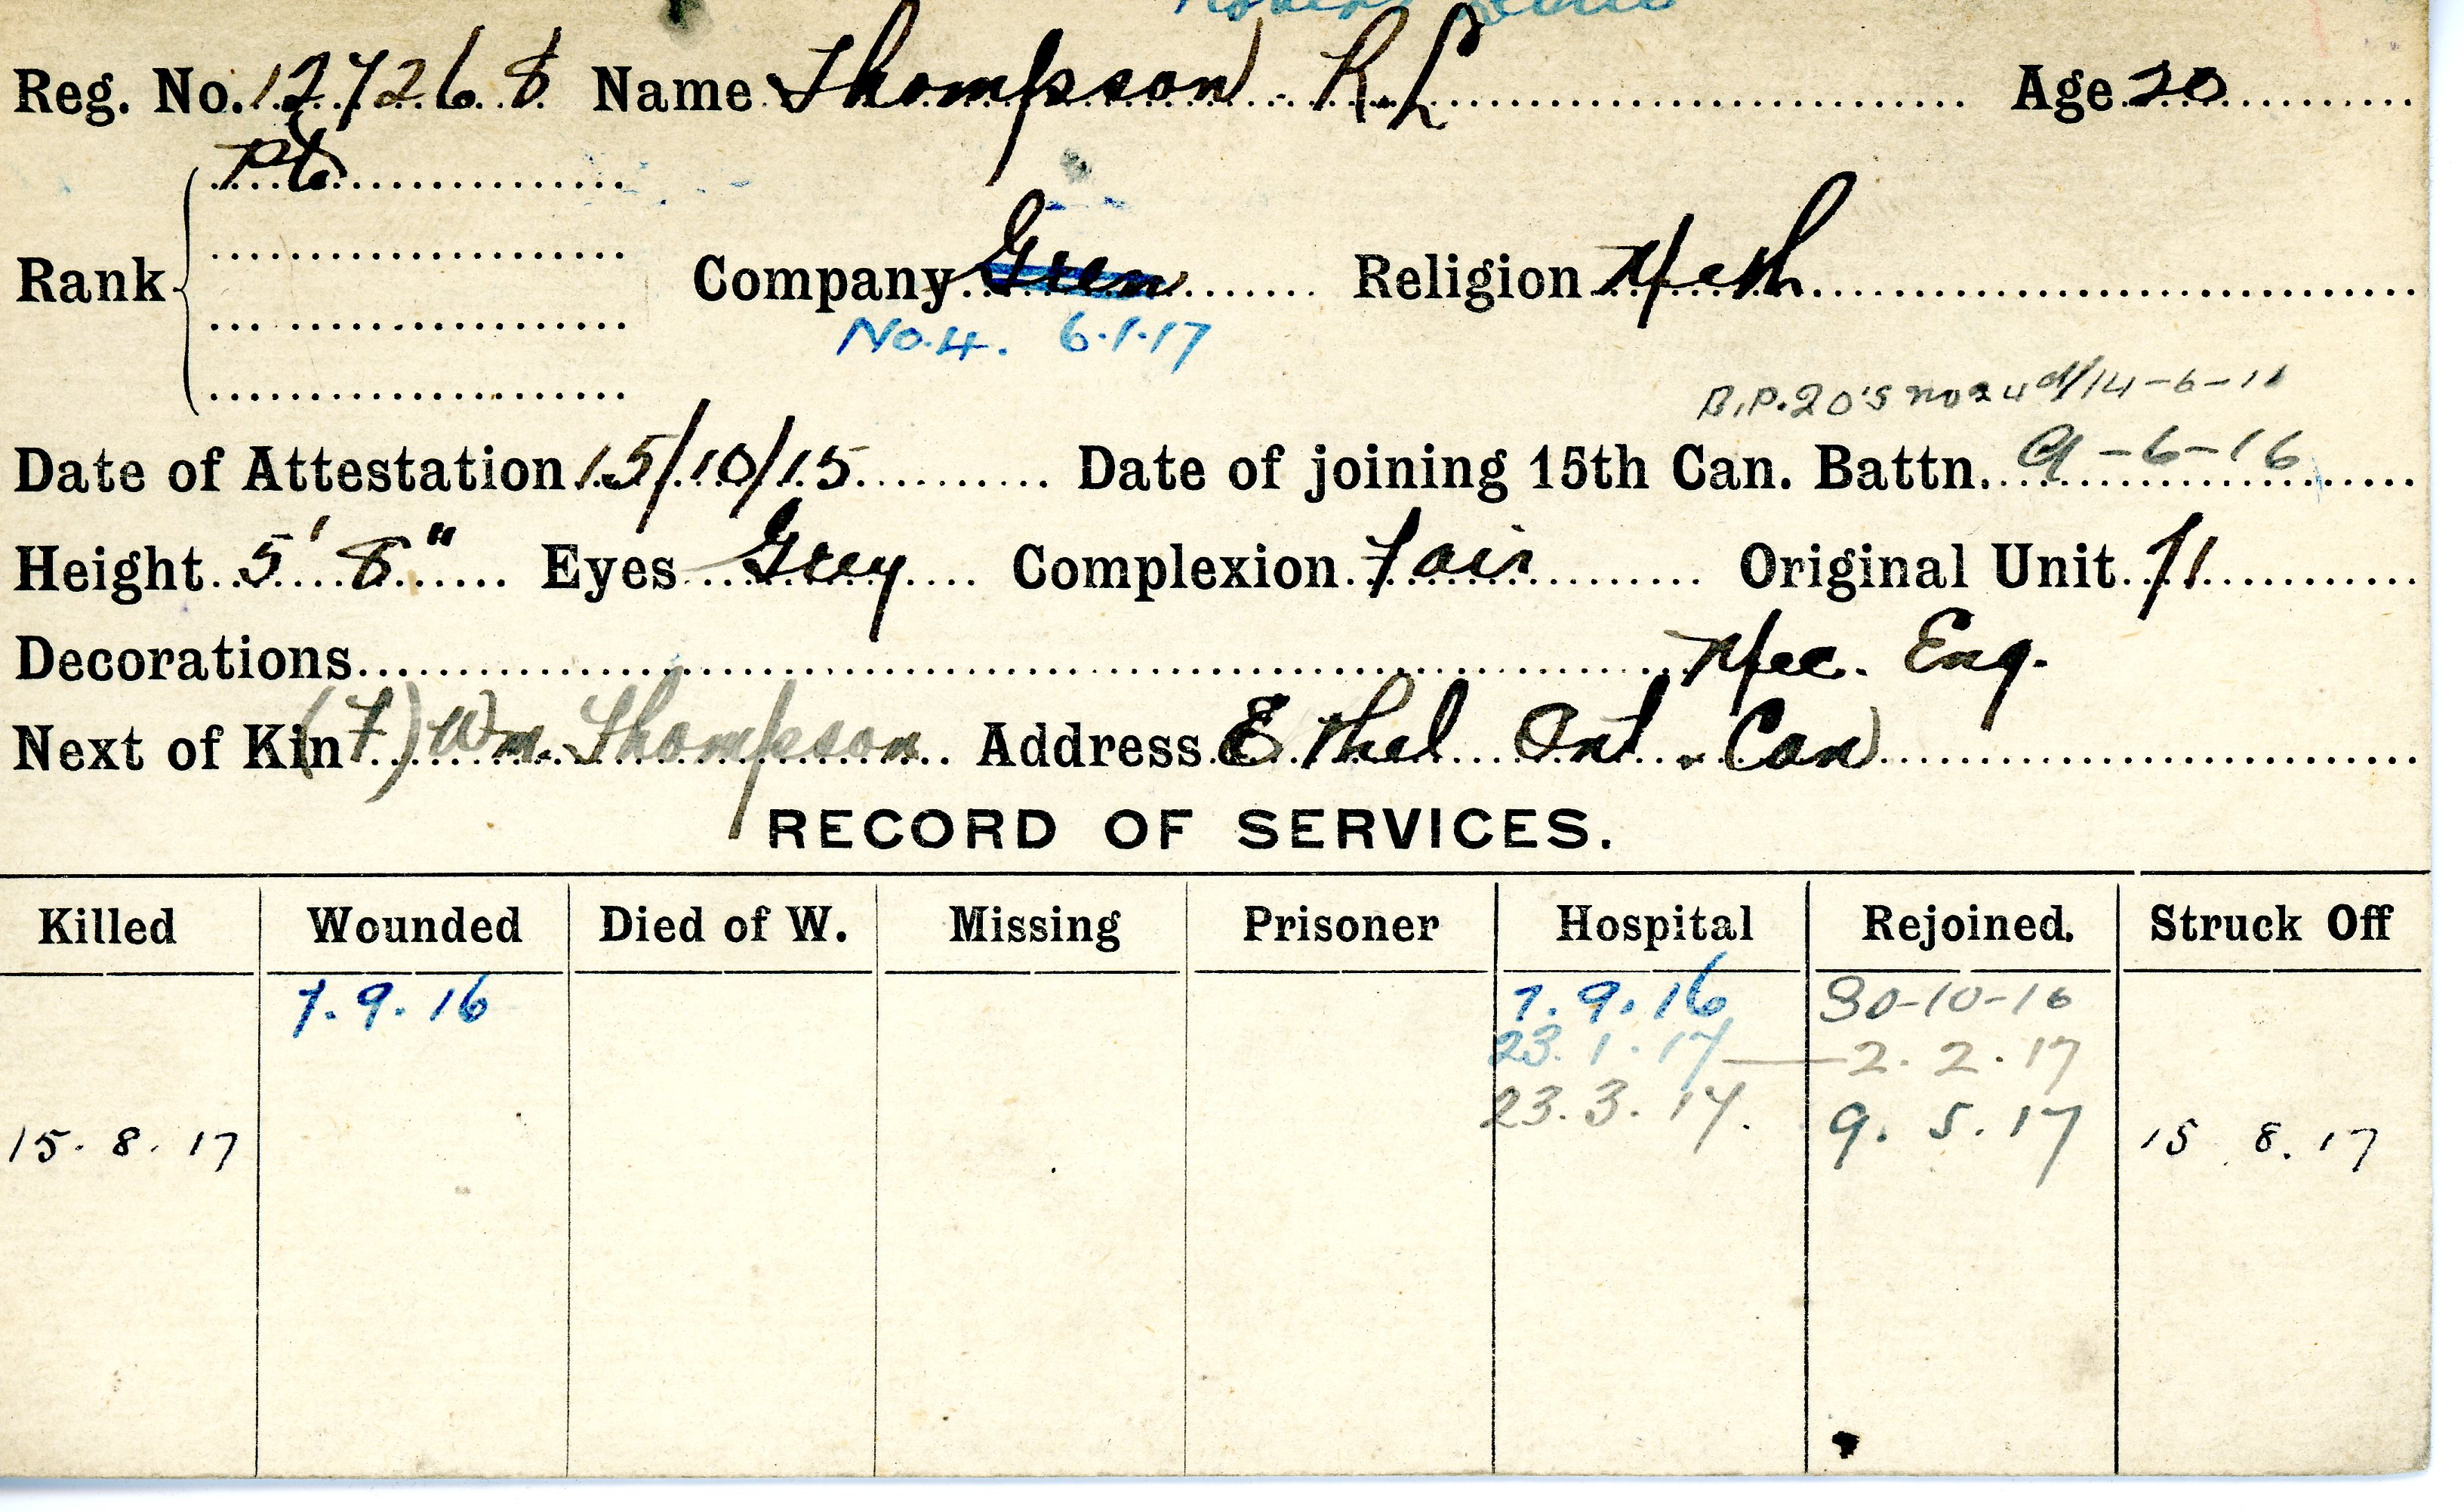 Robert
Reg. No. 127268 Name Thompson R.L Age 20
Pte
Rank
Company Gren Religion Meth
No.4. 6.1.17
B.P.20's no 24 d/14-6-16
Date of Attestation 15/10/15 Date of joining 15th Can. Battn. 9-6-16
Height 5' 8" Eyes Grey Complexion Fair Original Unit 71
Decorations Mec. Eng.
Next of Kin (F) Wm. Thompson Address Ethel Ont. Can
RECORD OF SERVICES.
Killed Wounded Died of W. Missing Prisoner Hospital Rejoined. Struck Off
7.9.16 7.9.16 30-10-16
23.1.17 — 2.2.17
23.3.17. 9.5.17
15.8.17 15.8.17